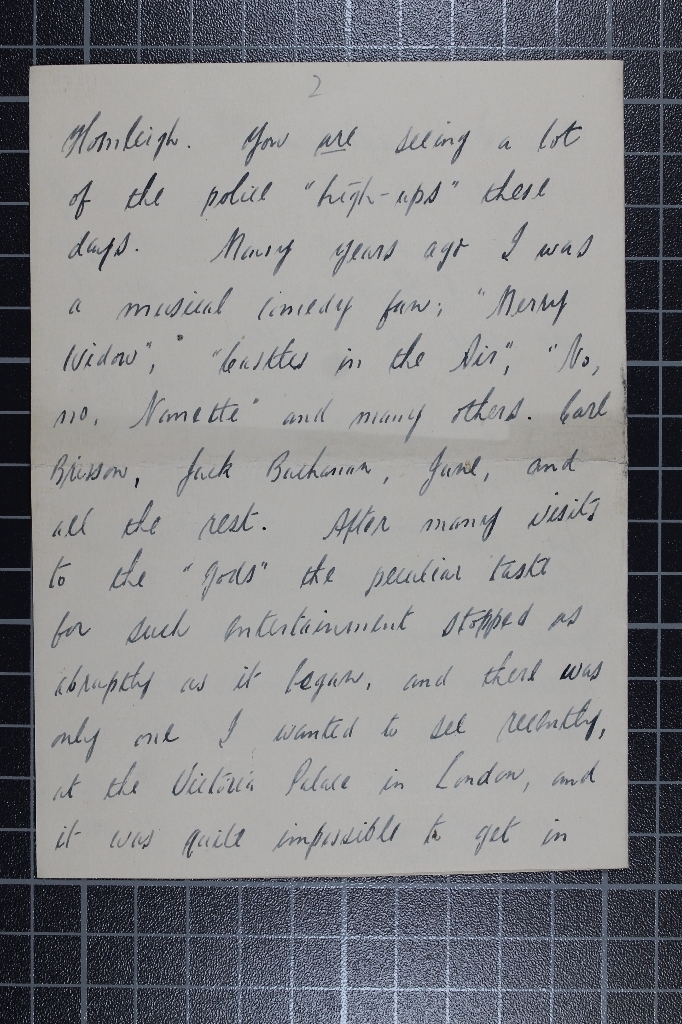 2
Hornleigh. You are seeing a lot
of the police "high-ups" these
days. Many years ago I was
a musical comedy fan; "Merry
Widow", "Castles in the Air", "No,
no, Nanette" and many others. Carl
Brisson, Jack Buchanan, June, and
all the rest. After many visits
to the "Gods" the peculiar taste
for such entertainment stopped as
abruptly as it began, and there was
only one I wanted to see recently,
at the Victoria Palace in London, and
it was quite impossible to get in